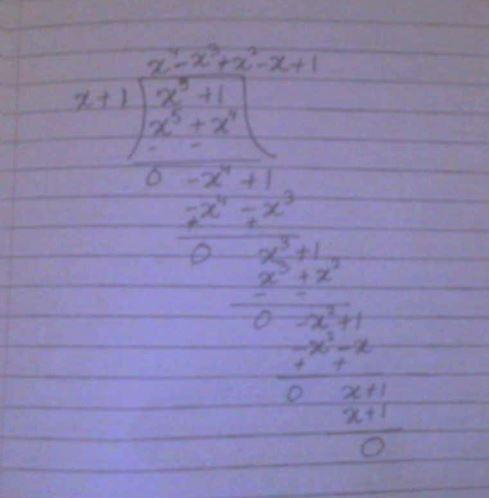 x⁴-x³+x²-x+1
x+1 ) x⁵ +1 (
x⁵ + x⁴
- -
0 -x⁴ +1
-x⁴ - x³
+ +
0 x³+1
x³ + x²
- -
0 -x²+1
-x² - x
+ +
0 x+1
x+1
0